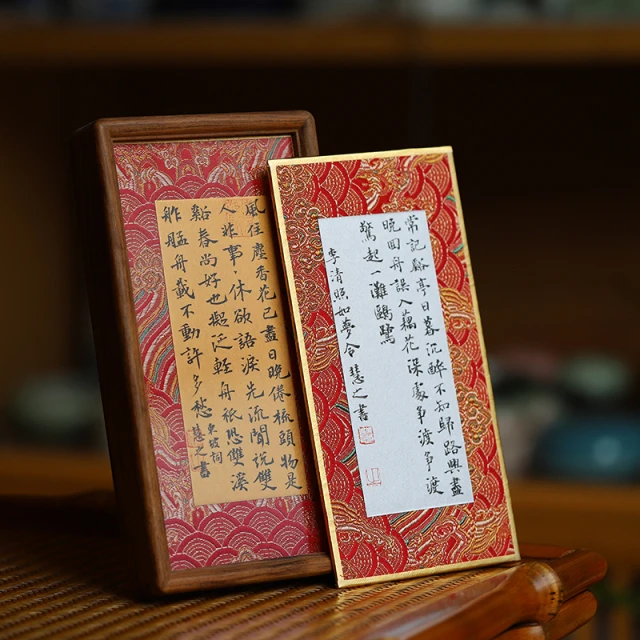 風住塵香花已盡日晚倦梳頭物是
人非事〻休欲語淚先流聞說雙
谿春尚好也擬泛輕舟秖恐雙溪
舴艋舟載不動許多愁
東坡詞
慧之書
常記谿亭日暮沉醉不知歸路興盡
晚回舟誤入藕花深處爭渡爭渡
驚起一灘鷗鷺
李清照如夢令 慧之書